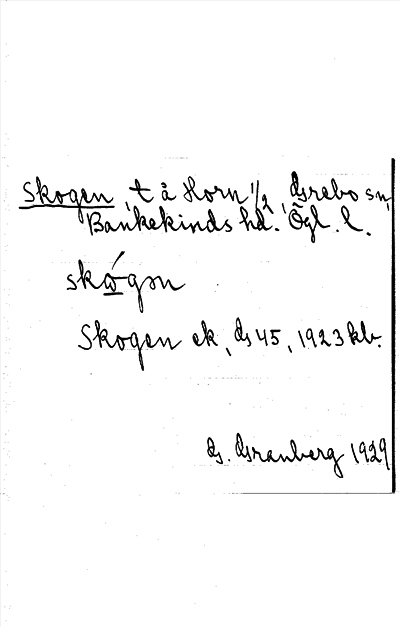 Skogen, t å Horn 1/2, Grebo sn,
Bankekinds hd. Ögl. l.
skωgən
Skogen ek, G 45, 1923 kb.
G. Granberg 1929